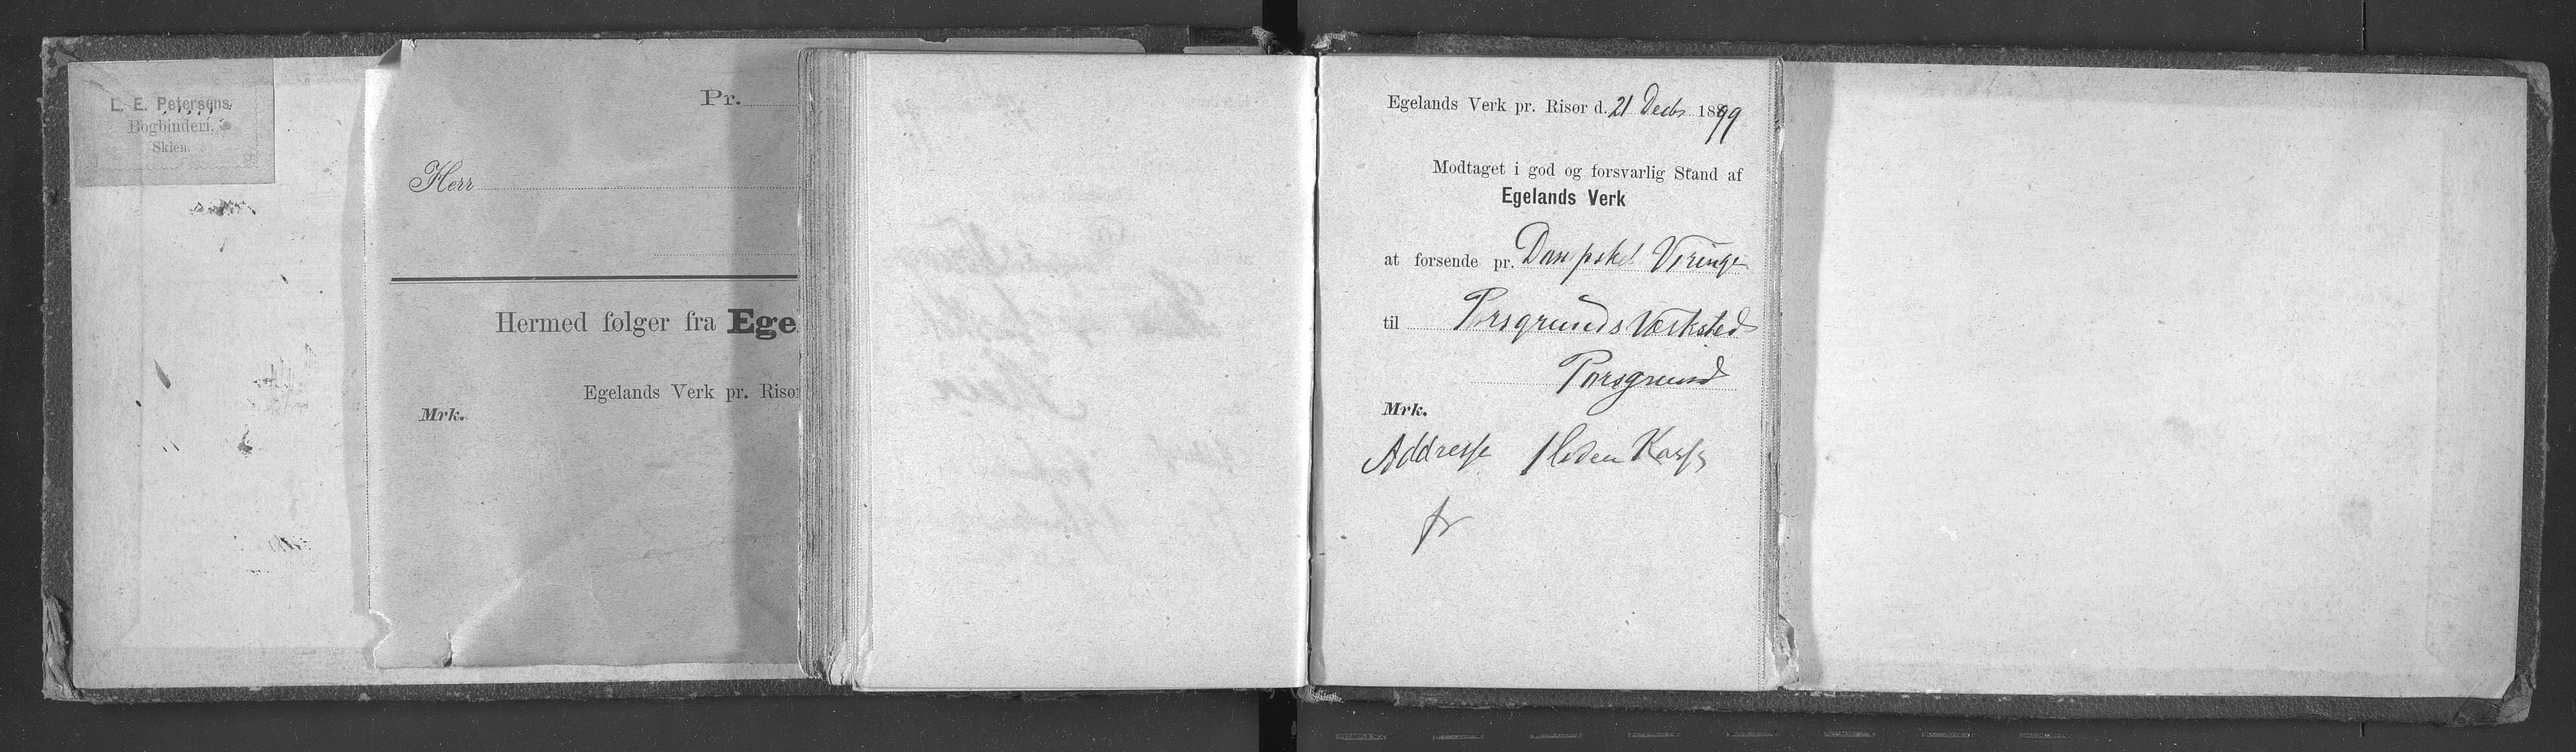 L. E. Petersens
Bogbinderi,
Skien.
Pr.
Herr
Hermed følger fra Ege
Egelands Verk pr. Risør
Mrk.
Egelands Verk pr. Risør d. 21 Decbr 1899
Modtaget i god og forsvarlig Stand af
Egelands Verk
at forsende pr. Dampskel Viringe
til Porsgrunds Værksted
Porsgrund
Mrk.
Addresse 1 Liden Kasse